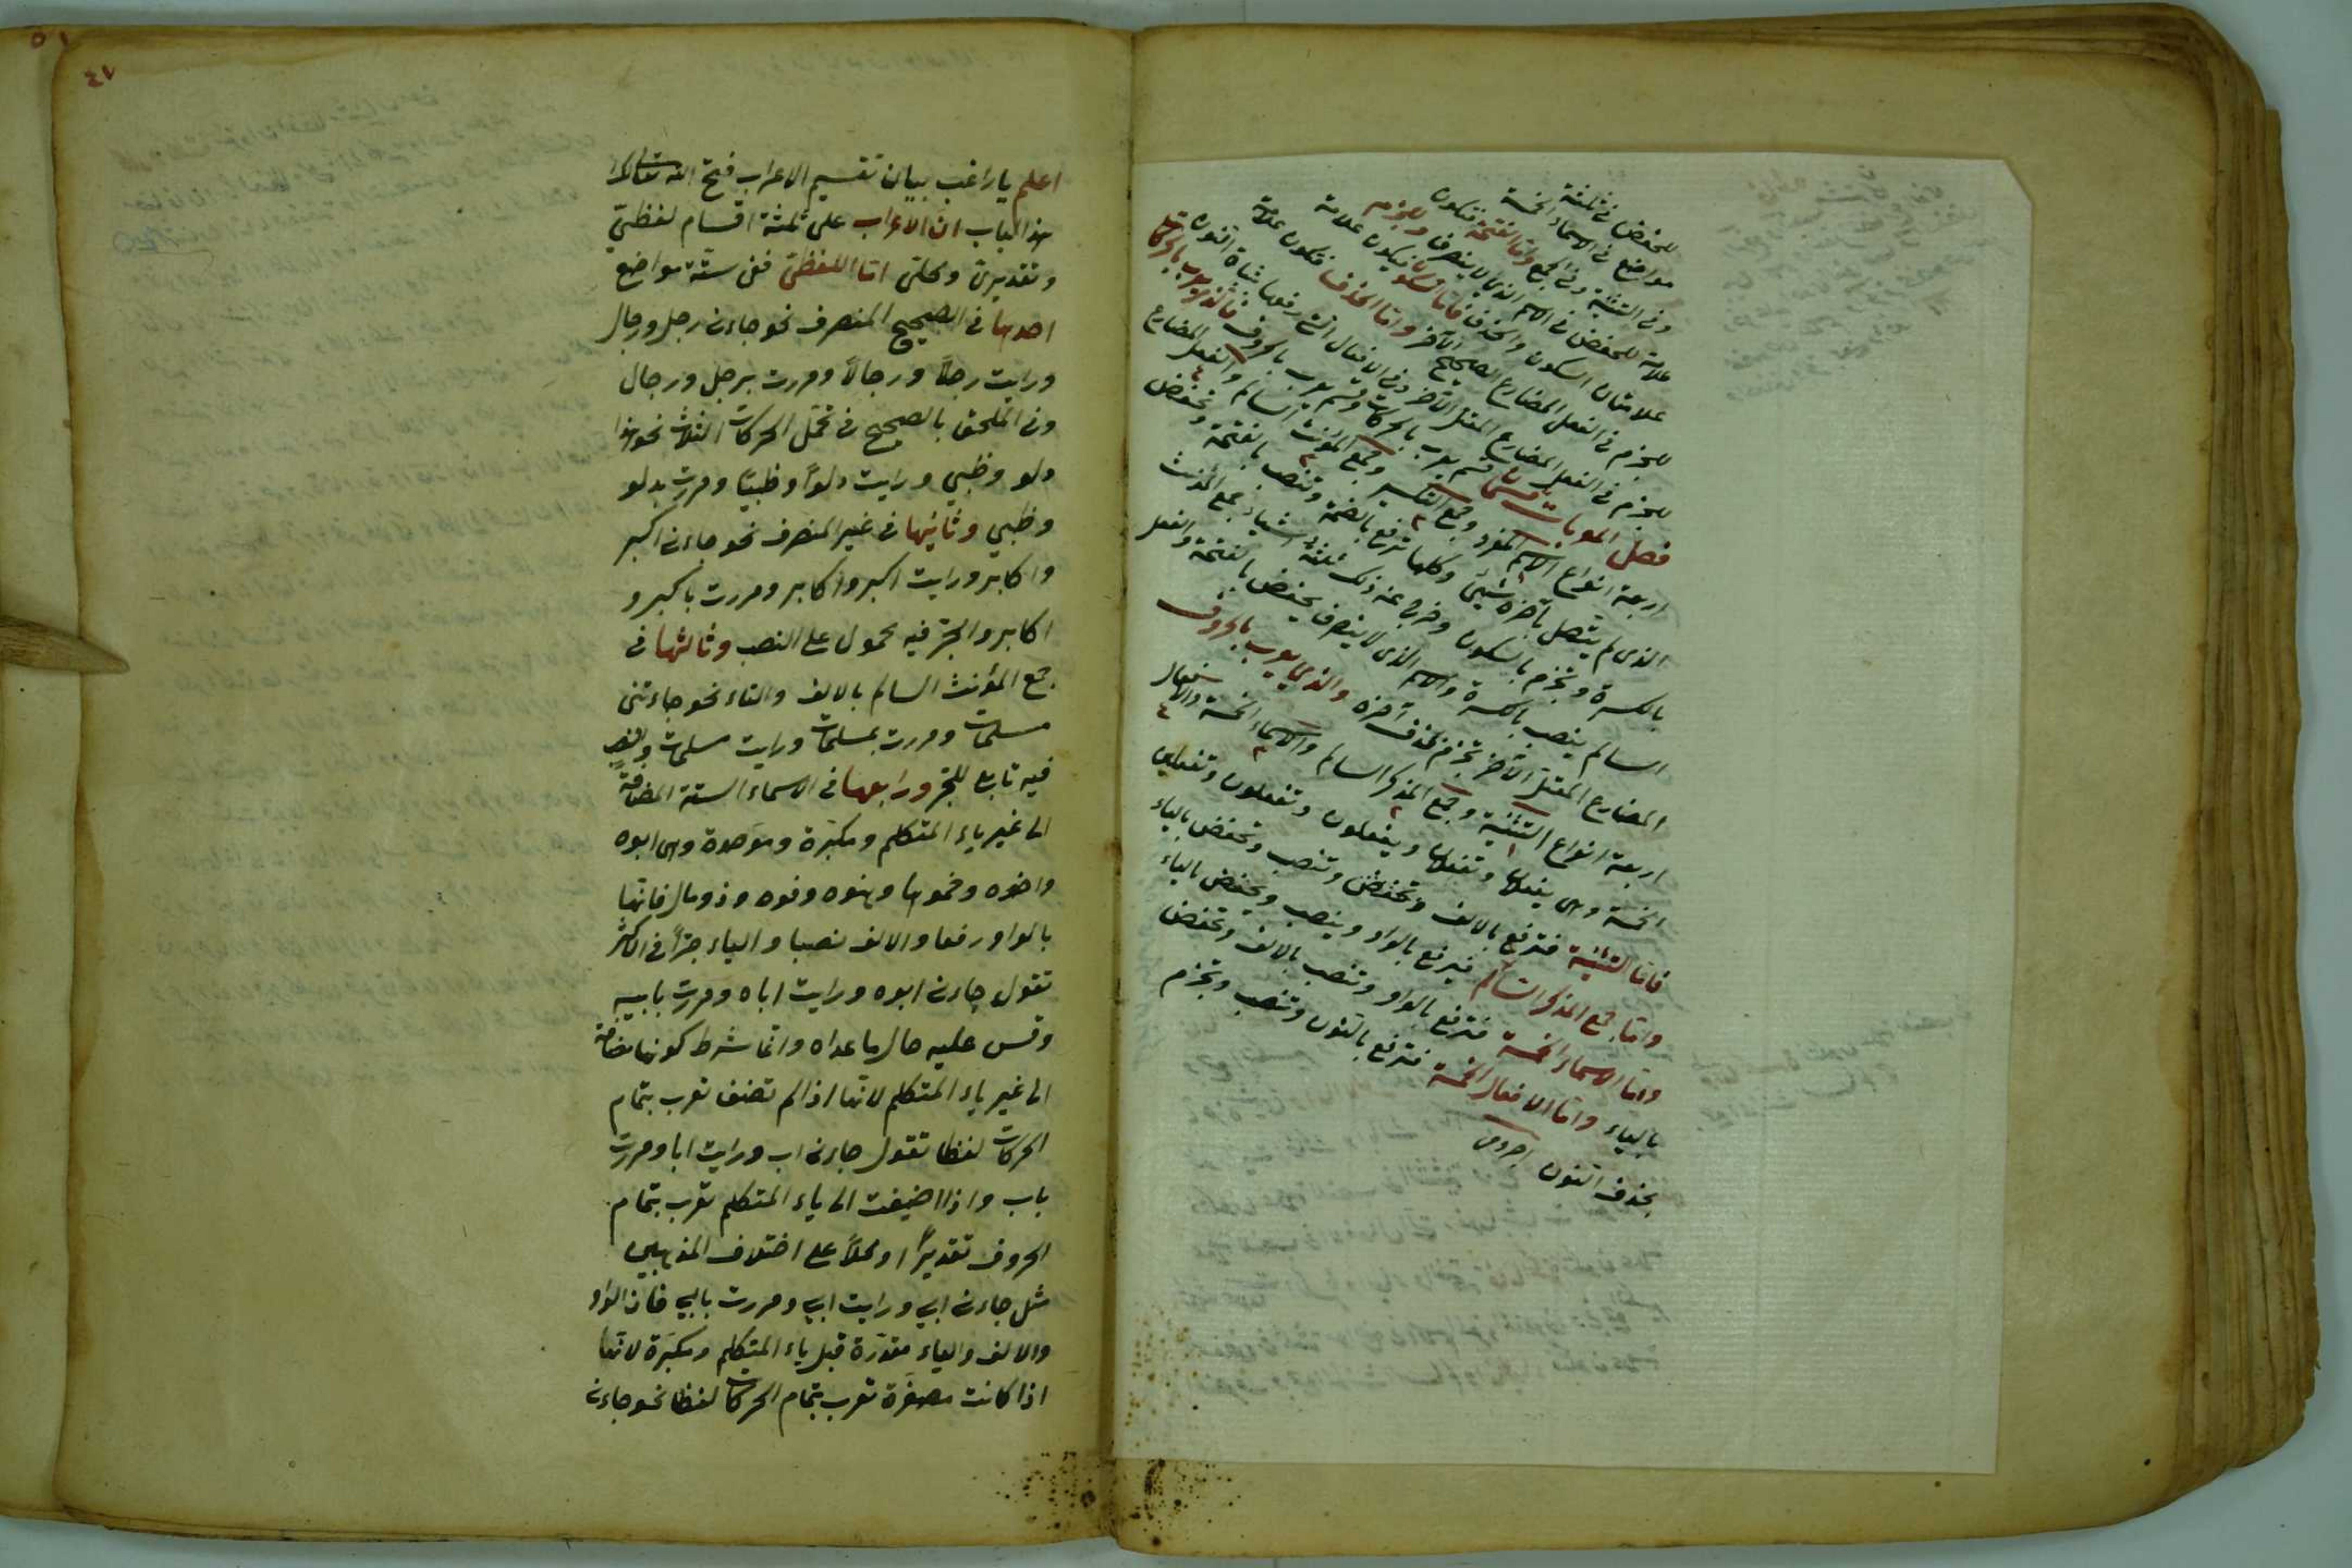 للخفض في ثلثة
مواضع في الاسماء الخمسة
وفي التثنية وفي الجمع وامّا الفتحة فتكون
علامة للخفض في الاسم الذي لا ينصرف وللجزم
علامتان السكون والحذف فامّا السكون فيكون علامة
للجزم في الفعل المضارع الصحيح الآخر وامّا الحذف فتكون علامة
للجزم في الفعل المضارع المعتل الآخر وفي الافعال التي رفعها بثبات النون
فصل المعربات قسمان قسم يعرب بالحركات وقسم يعرب بالحروف فالذي يعرب بالحركات
اربعة انواع الاسم المفرد وجمع التكسير وجمع المؤنث السالم والفعل المضارع
الذي لم يتصل بآخره شيئ وكلها ترفع بالضمة وتنصب بالفتحة وتخفض
بالكسرة وتجزم بالسكون وخرج عن ذلك ثلثة اشياء جمع المؤنث
السالم ينصب بالكسرة والاسم الذي لا ينصرف يخفض بالفتحة والفعل
المضارع المعتل الآخر تجزم بحذف آخره والذي يعرب بالحروف
اربعة انواع التثنية وجمع المذكر السالم والاسماء الخمسة والافعال
الخمسة وهي يفعلان وتفعلان ويفعلون وتفعلون وتفعلين
فامّا التثنية فترفع بالالف وتخفض وتنصب وتخفض بالياء
وامّا جمع المذكر السالم فيرفع بالواو وينصب ويخفض بالياء
وامّا الاسماء الخمسة فترفع بالواو وتنصب بالالف وتخفض
بالياء وامّا الافعال الخمسة فترفع بالنون وتنصب وتجزم
بحذف النون اجروم
اعلم يا راغب ببيان تقسيم الاعراب فتح الله تعالى
هذا الباب انّ الاعراب على ثلثة اقسام لفظيّ
وتقديريّ ومحليّ امّا اللفظيّ ففي ستّة مواضع
احدها في الصحيح المنصرف نحو جاءني رجل ورجال
ورايت رجلاً ورجالاً ومررت برجل ورجال
وفي الملحق بالصحيح في تحمّل الحركات الثلاث نحو هذا
دلو وظبي ورايت دلواً وظبيًا ومررت بدلو
وظبي وثانيها في غير المنصرف نحو جاءني اكبر
واكابر ورايت اكبر واكابر ومررت باكبر و
اكابر والجرّ فيه محمول على النصب وثالثها في
جمع المؤنث السالم بالالف والتاء نحو جاءتني
مسلمات ومررت بمسلمات ورايت مسلمات والنصب
فيه تابع للجرّ ورابعها في الاسماء الستة المضافة
الى غير ياء المتكلم ومكبّرة وموحدة وهي ابوه
واخوه وحموها وهنوه وفوه وذو مال فانّها
بالواو رفعا والالف نصبا والياء جرّاً في الاكثر
تقول جاءني ابوه ورايت اباه ومررت بابيه
وقس عليه حال ما عداه وانّما شرط كونها مضافة
الى غير ياء المتكلم لانّها اذا لم تضف تعرب بتمام
الحركات لفظا تقول جاءني اب ورايت ابا ومررت
باب واذا اضيفت الى ياء المتكلم تعرب بتمام
الحروف تقديراً او محلاً على اختلاف المذهبين
مثل جاءني ابي ورايت ابي ومررت بابي فانّ الواو
والالف والياء مقدّرة قبل ياء المتكلم ومكبّرة لانّها
اذا كانت مصغّرة تعرب بتمام الحركات لفظا نحو جاءني